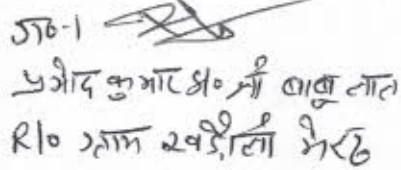 ग०-1
प्रमोद कुमार S/o श्री बाबू लाल
R/o ग्राम खडौली मेरठ